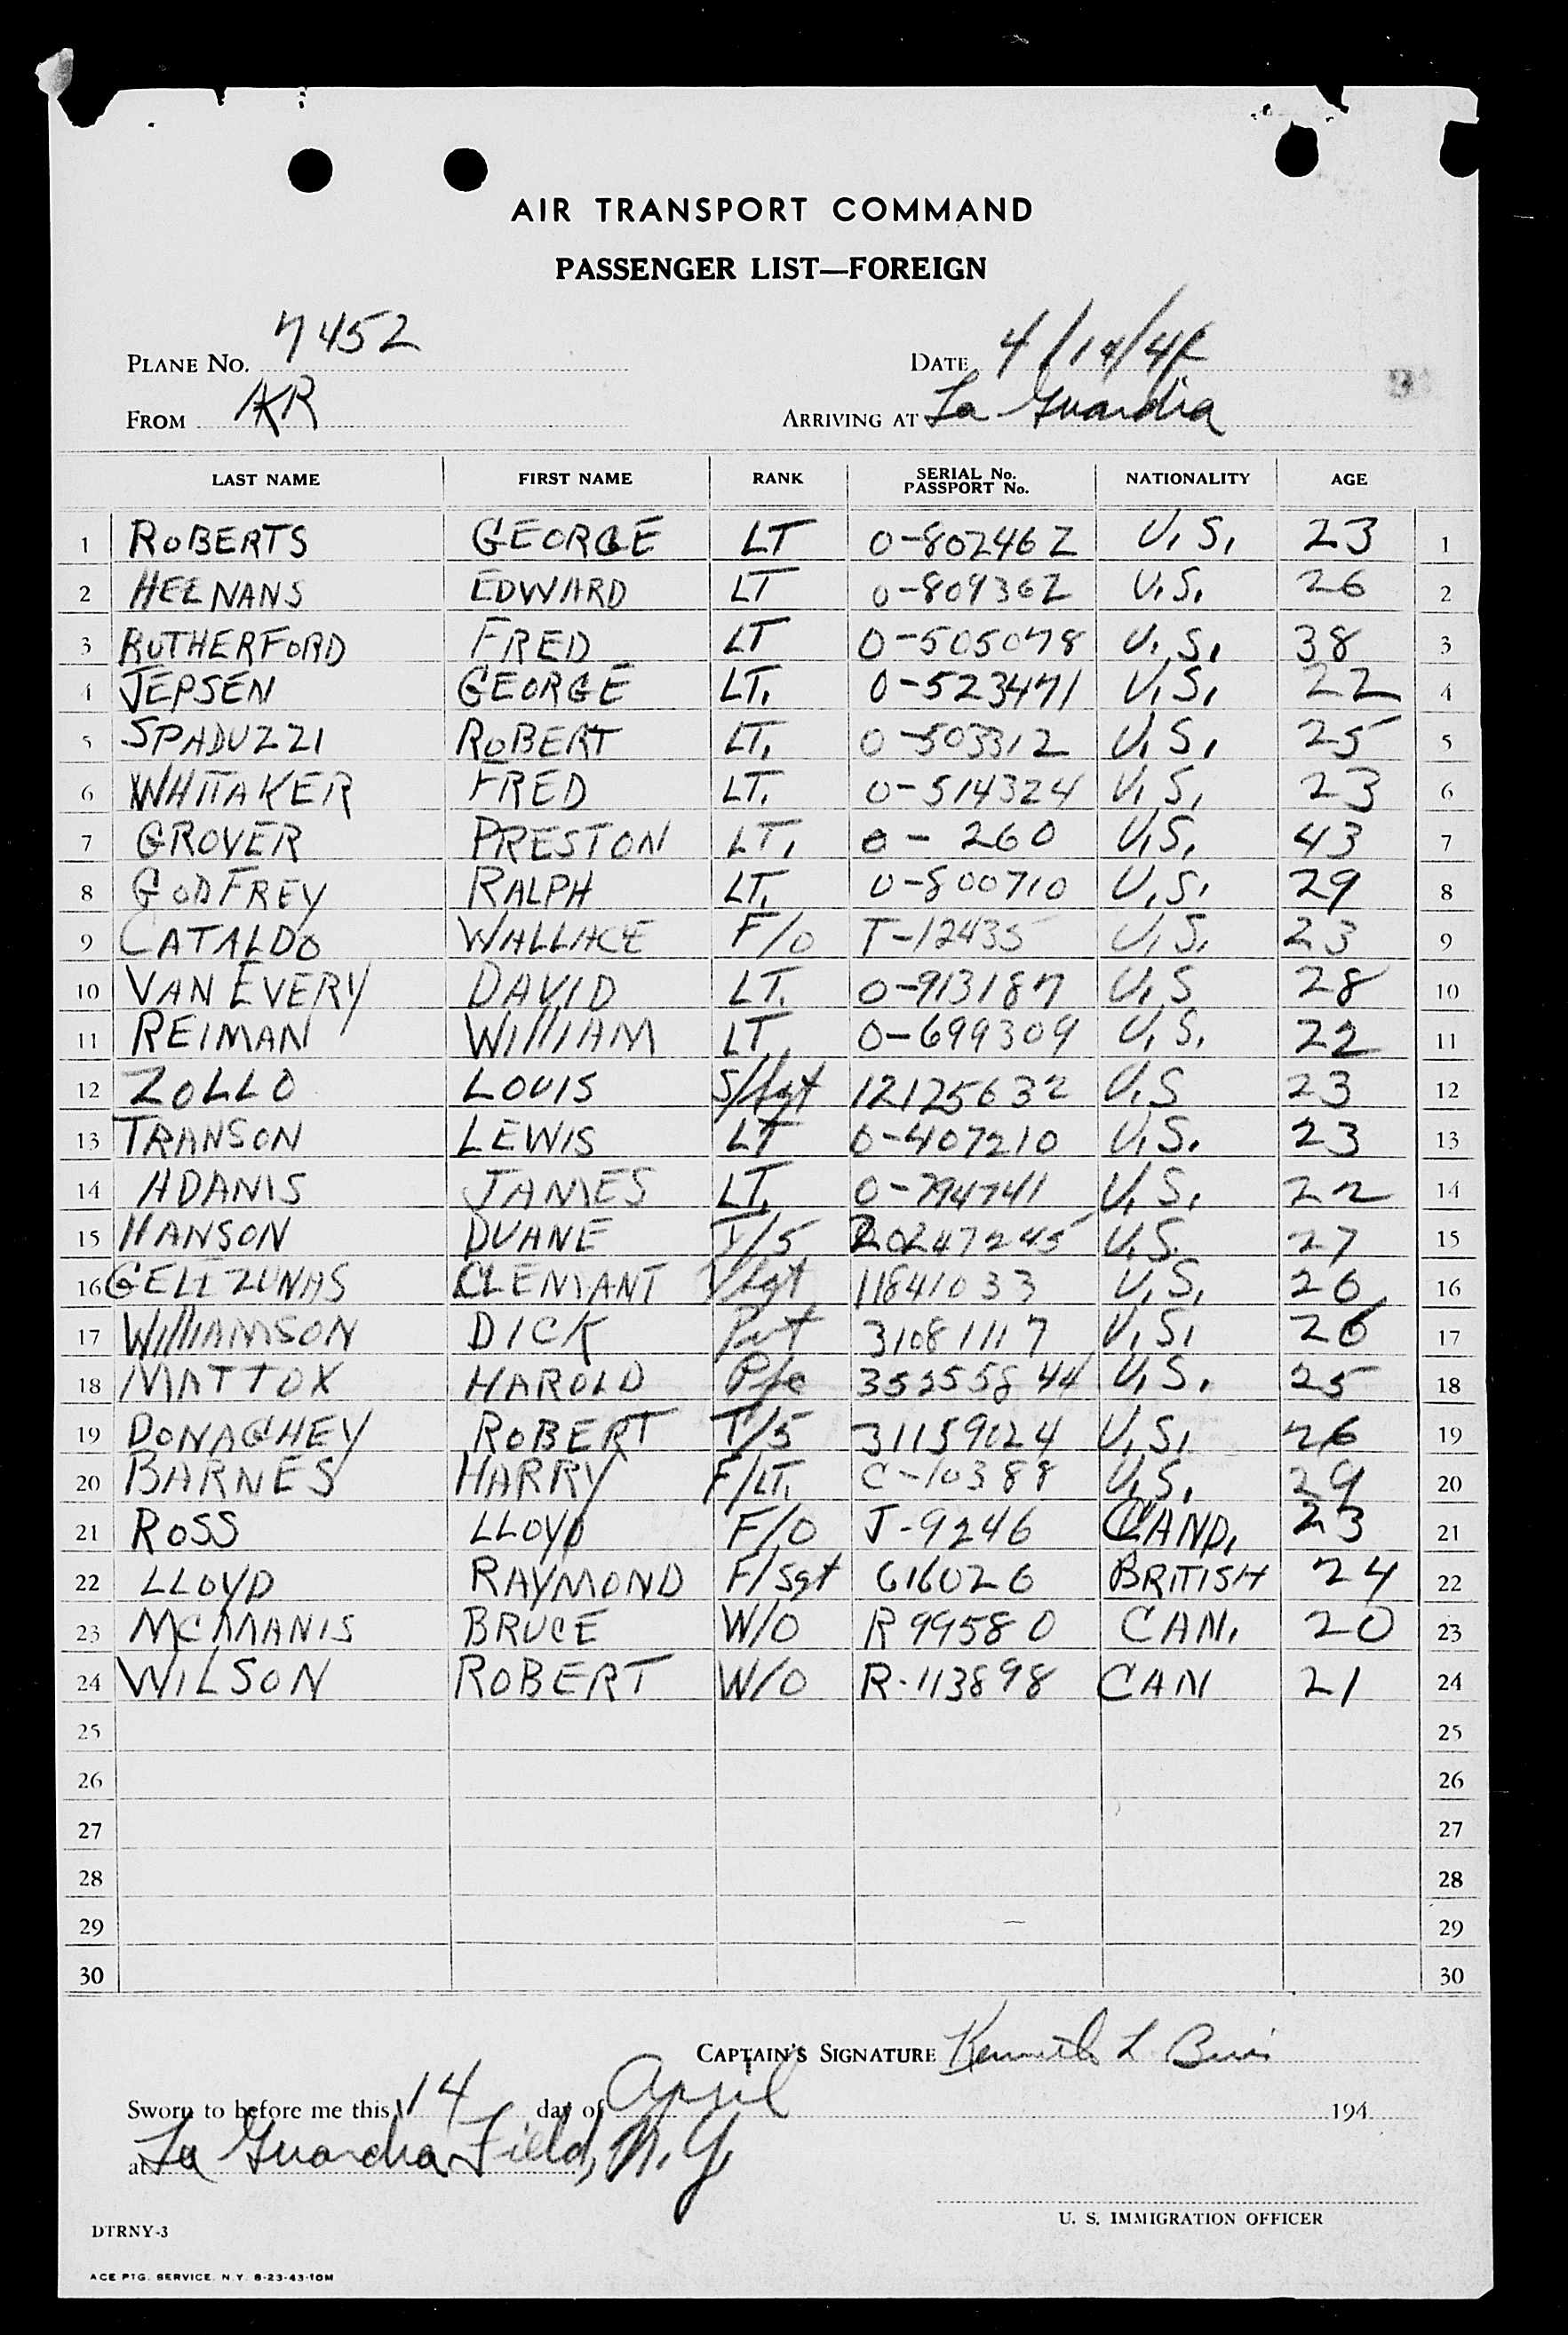 AIR TRANSPORT COMMAND
PASSENGER LIST—FOREIGN
PLANE NO. 7452 DATE 4/14/44
FROM ARRIVING AT La Guardia
LAST NAME FIRST NAME RANK SERIAL No. PASSPORT No. NATIONALITY AGE
1 ROBERTS GEORGE LT 0-802462 U.S. 23 1
2 HEENANS EDWARD LT 0-809362 U.S. 26 2
3 RUTHERFORD FRED LT 0-505078 U.S. 38 3
4 JEPSEN GEORGE LT. 0-523471 U.S. 22 4
5 SPADUZZI ROBERT LT. 0-503312 U.S. 25 5
6 WHITTAKER FRED LT. 0-514324 U.S. 23 6
7 GROVER PRESTON LT. 0- 260 U.S. 43 7
8 GODFREY RALPH LT. 0-800710 U.S. 29 8
9 CATALDO WALLACE F/O T-12435 U.S. 23 9
10 VAN EVERY DAVID LT. 0-913187 U.S 28 10
11 REIMAN WILLIAM LT. 0-699309 U.S. 22 11
12 ZOLLO LOUIS S/Sgt 12125632 U.S 23 12
13 TRANSON LEWIS LT 0-407210 U.S. 23 13
14 ADAMS JAMES LT. 0-794741 U.S. 22 14
15 HANSON DUANE T/5 20247245 U.S. 27 15
16 GELEZUNAS CLEMANT 11841033 U.S. 26 16
17 WILLIAMSON DICK Pvt 31081117 U.S. 26 17
18 MATTOX HAROLD Pfc 35255844 U.S. 25 18
19 DONAGHEY ROBERT T/5 31159024 U.S. 26 19
20 BARNES HARRY F/LT. C-10388 U.S. 29 20
21 ROSS LLOYD F/O J-9246 CAND. 23 21
22 LLOYD RAYMOND F/Sgt 616026 BRITISH 24 22
23 MCMANIS BRUCE W/O R 99580 CAN. 20 23
24 WILSON ROBERT W/O R-113898 CAN 21 24
25 25
26 26
27 27
28 28
29 29
30 30
CAPTAIN'S SIGNATURE Kenneth L
Sworn to before me this 14 day of April 194
at La Guardia Field, N.Y.
U. S. IMMIGRATION OFFICER
DTRNY-3
ACE PTG. SERVICE. N.Y. 8-23-43-10M